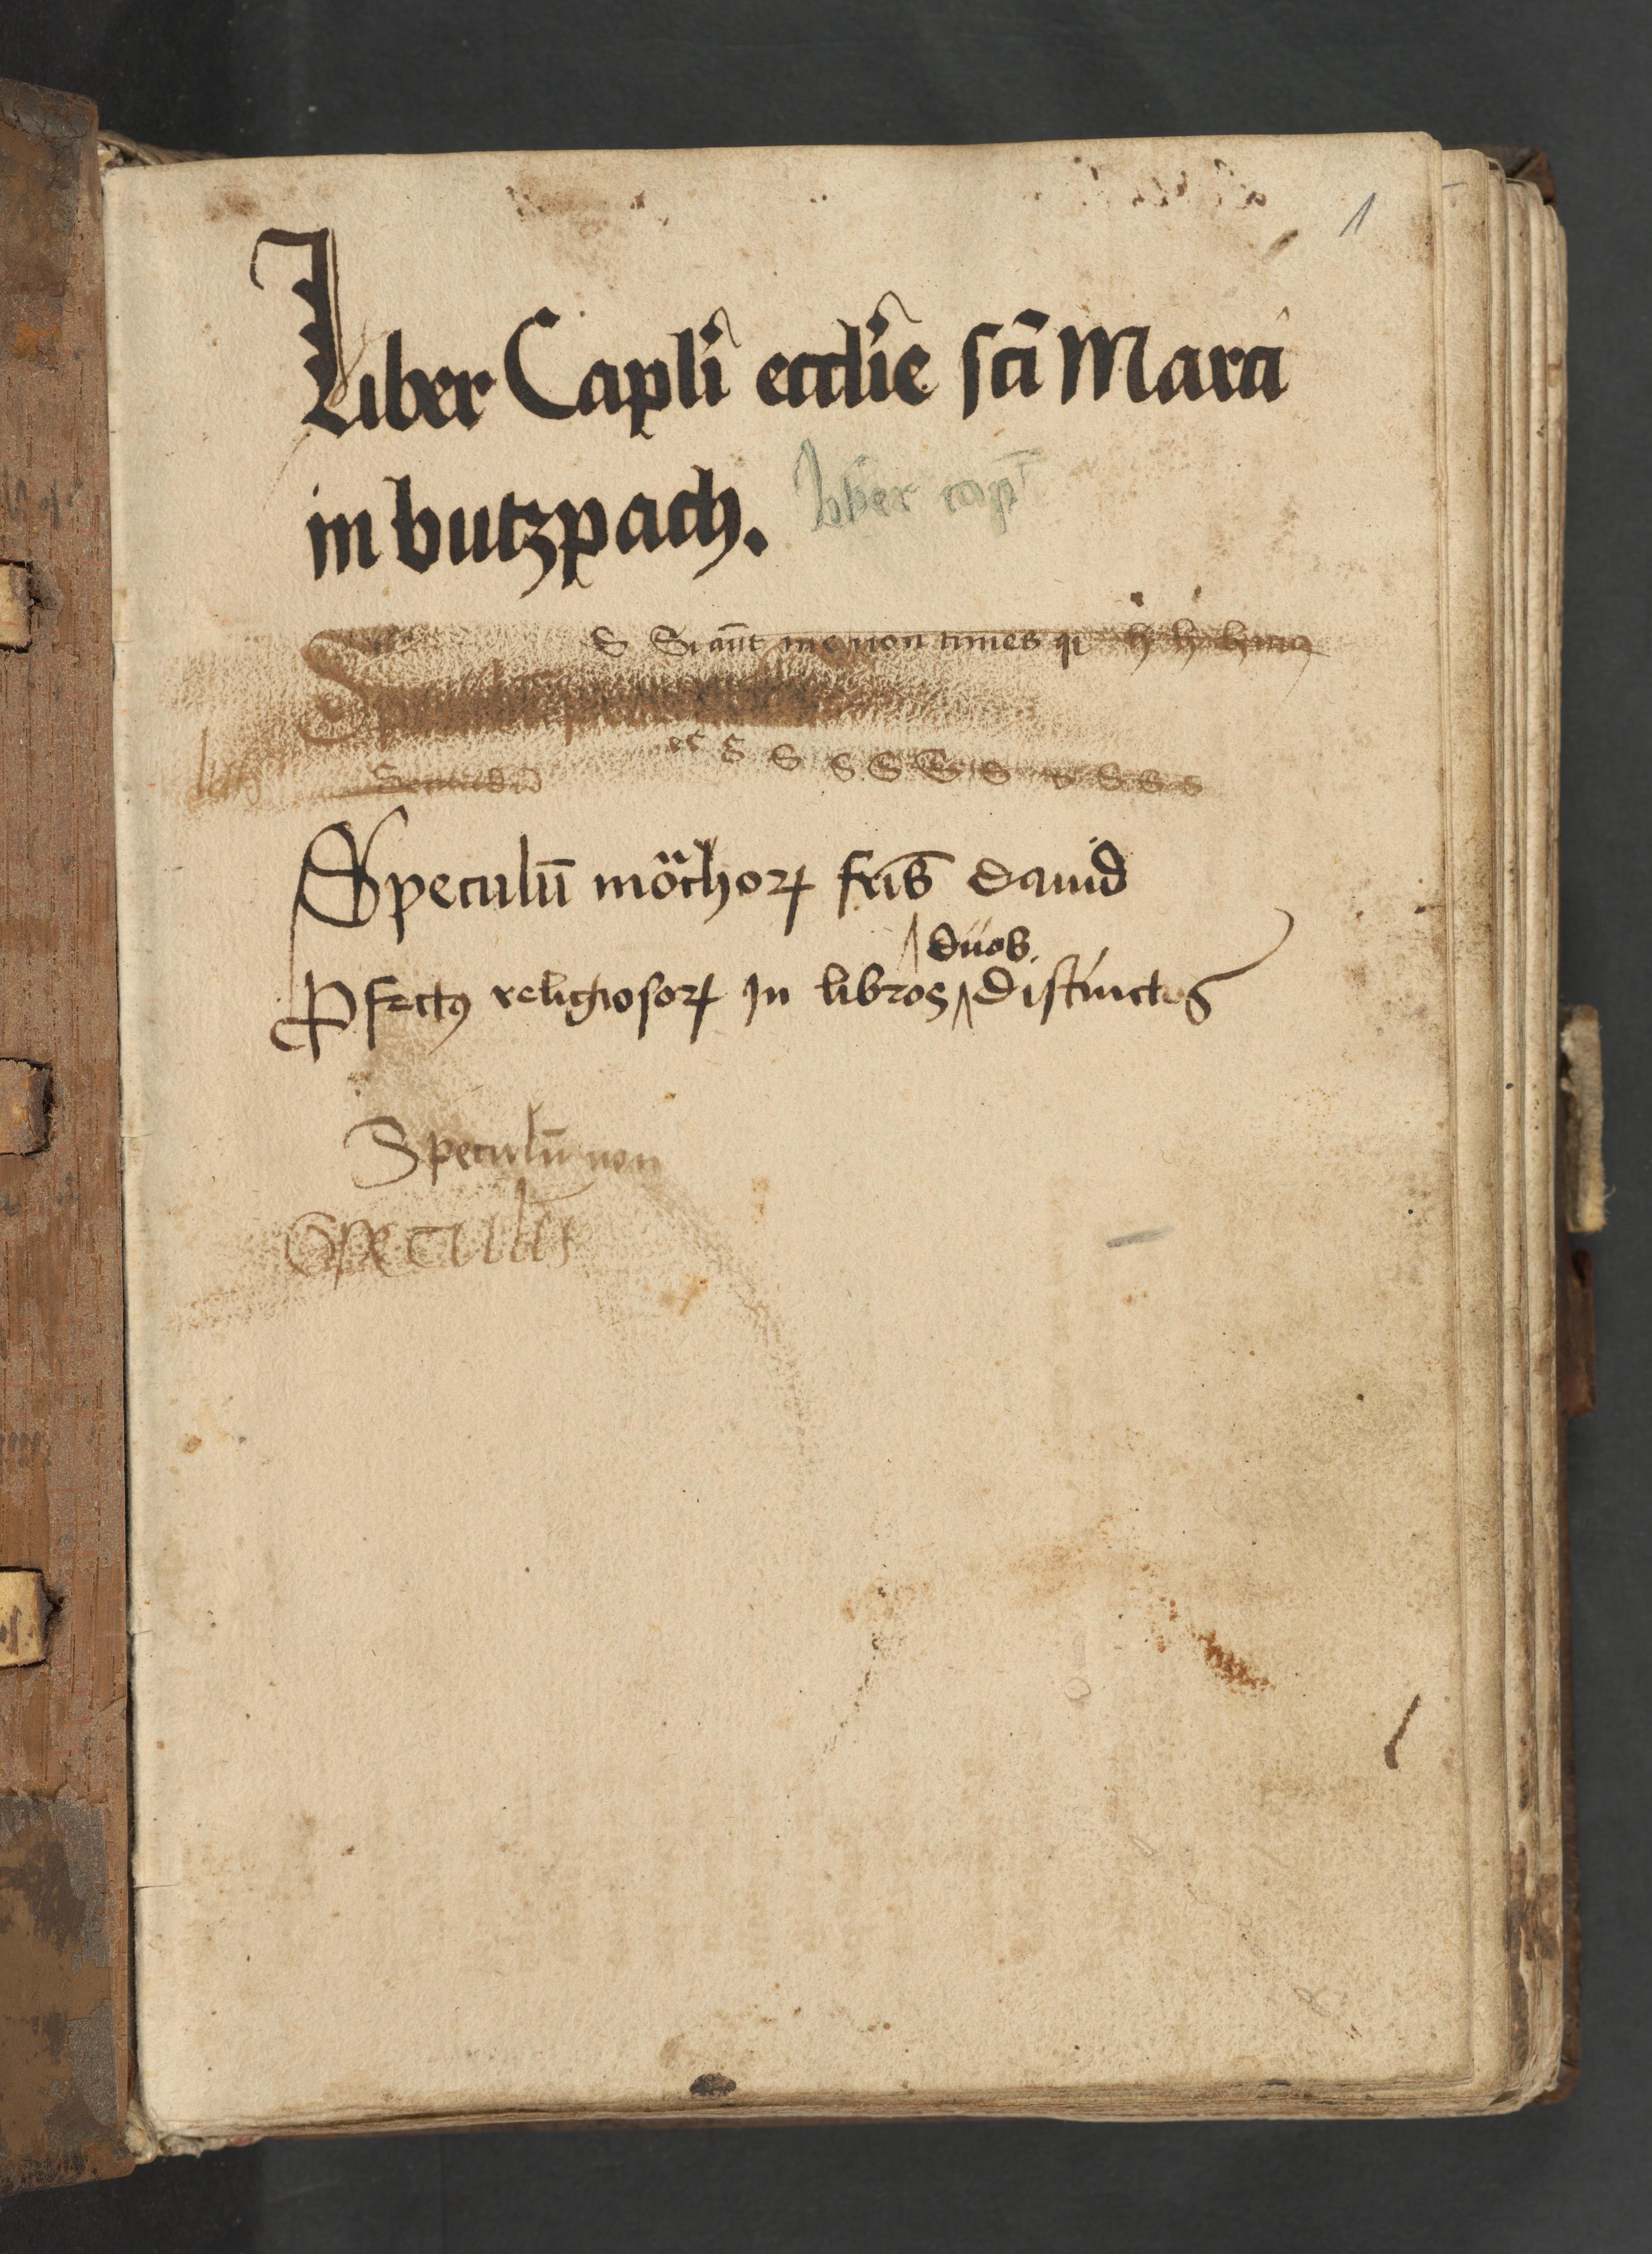 1
Liber Capli eccl'ie sci Marci
in butzpach.
Liber cap
S Si aut me non times qi h h
S S S S S S
Speculū mōchoꝝ fris dauid
duos.
Pfectꝯ religiosoꝝ In libros distinctos
Speculū mon
Speculūs